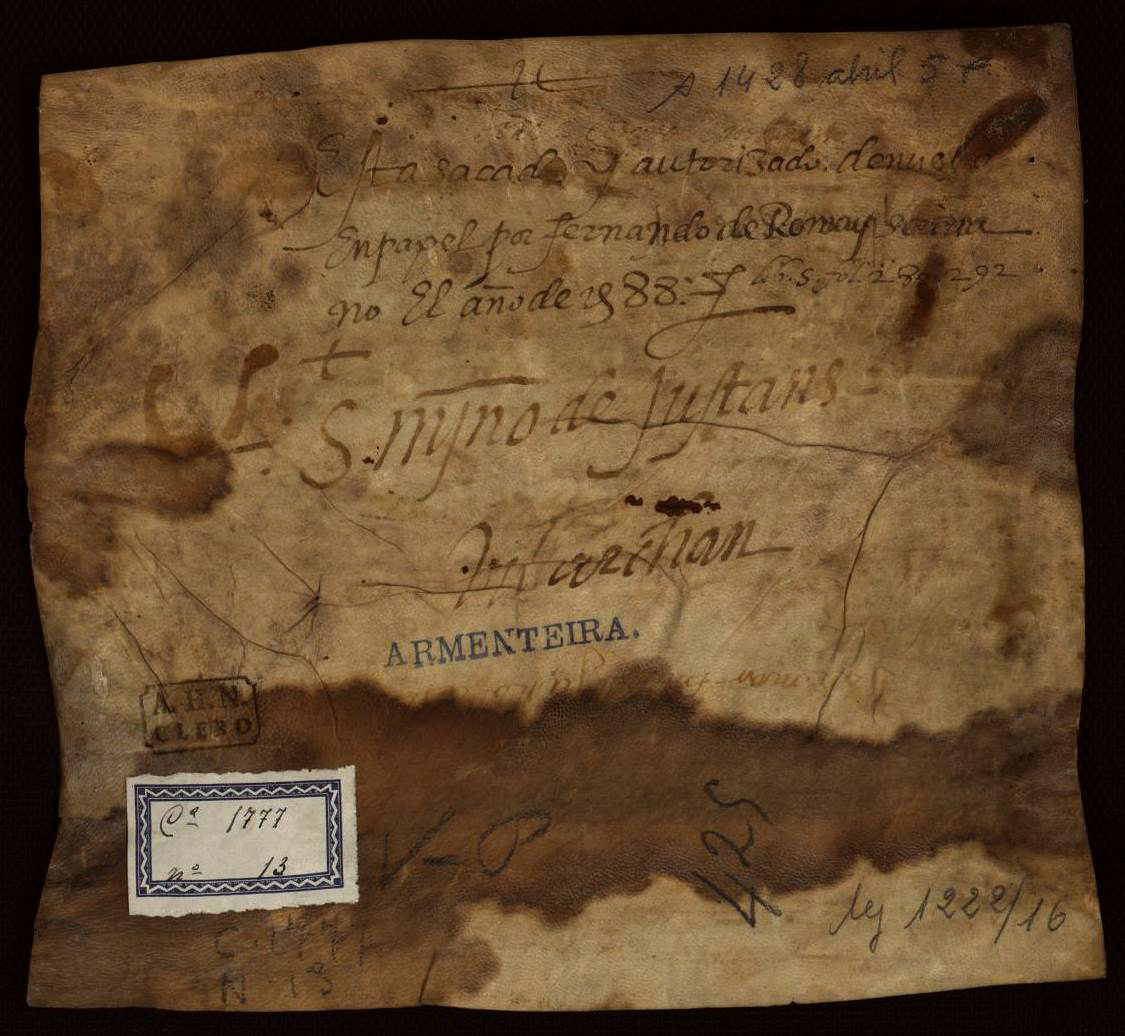 A 1428 abril 5
Esta sacado y autorizado. denuebo
Enpapel por fernando de Romay scriua
no El año de 1588:
S. mȷ̄no de Justans
Marchan
ARMENTEIRA.
A. H. N.
CLERO
Cª 1777
nº 13
V-P
425
leg 1222/16
C-1777
N 13